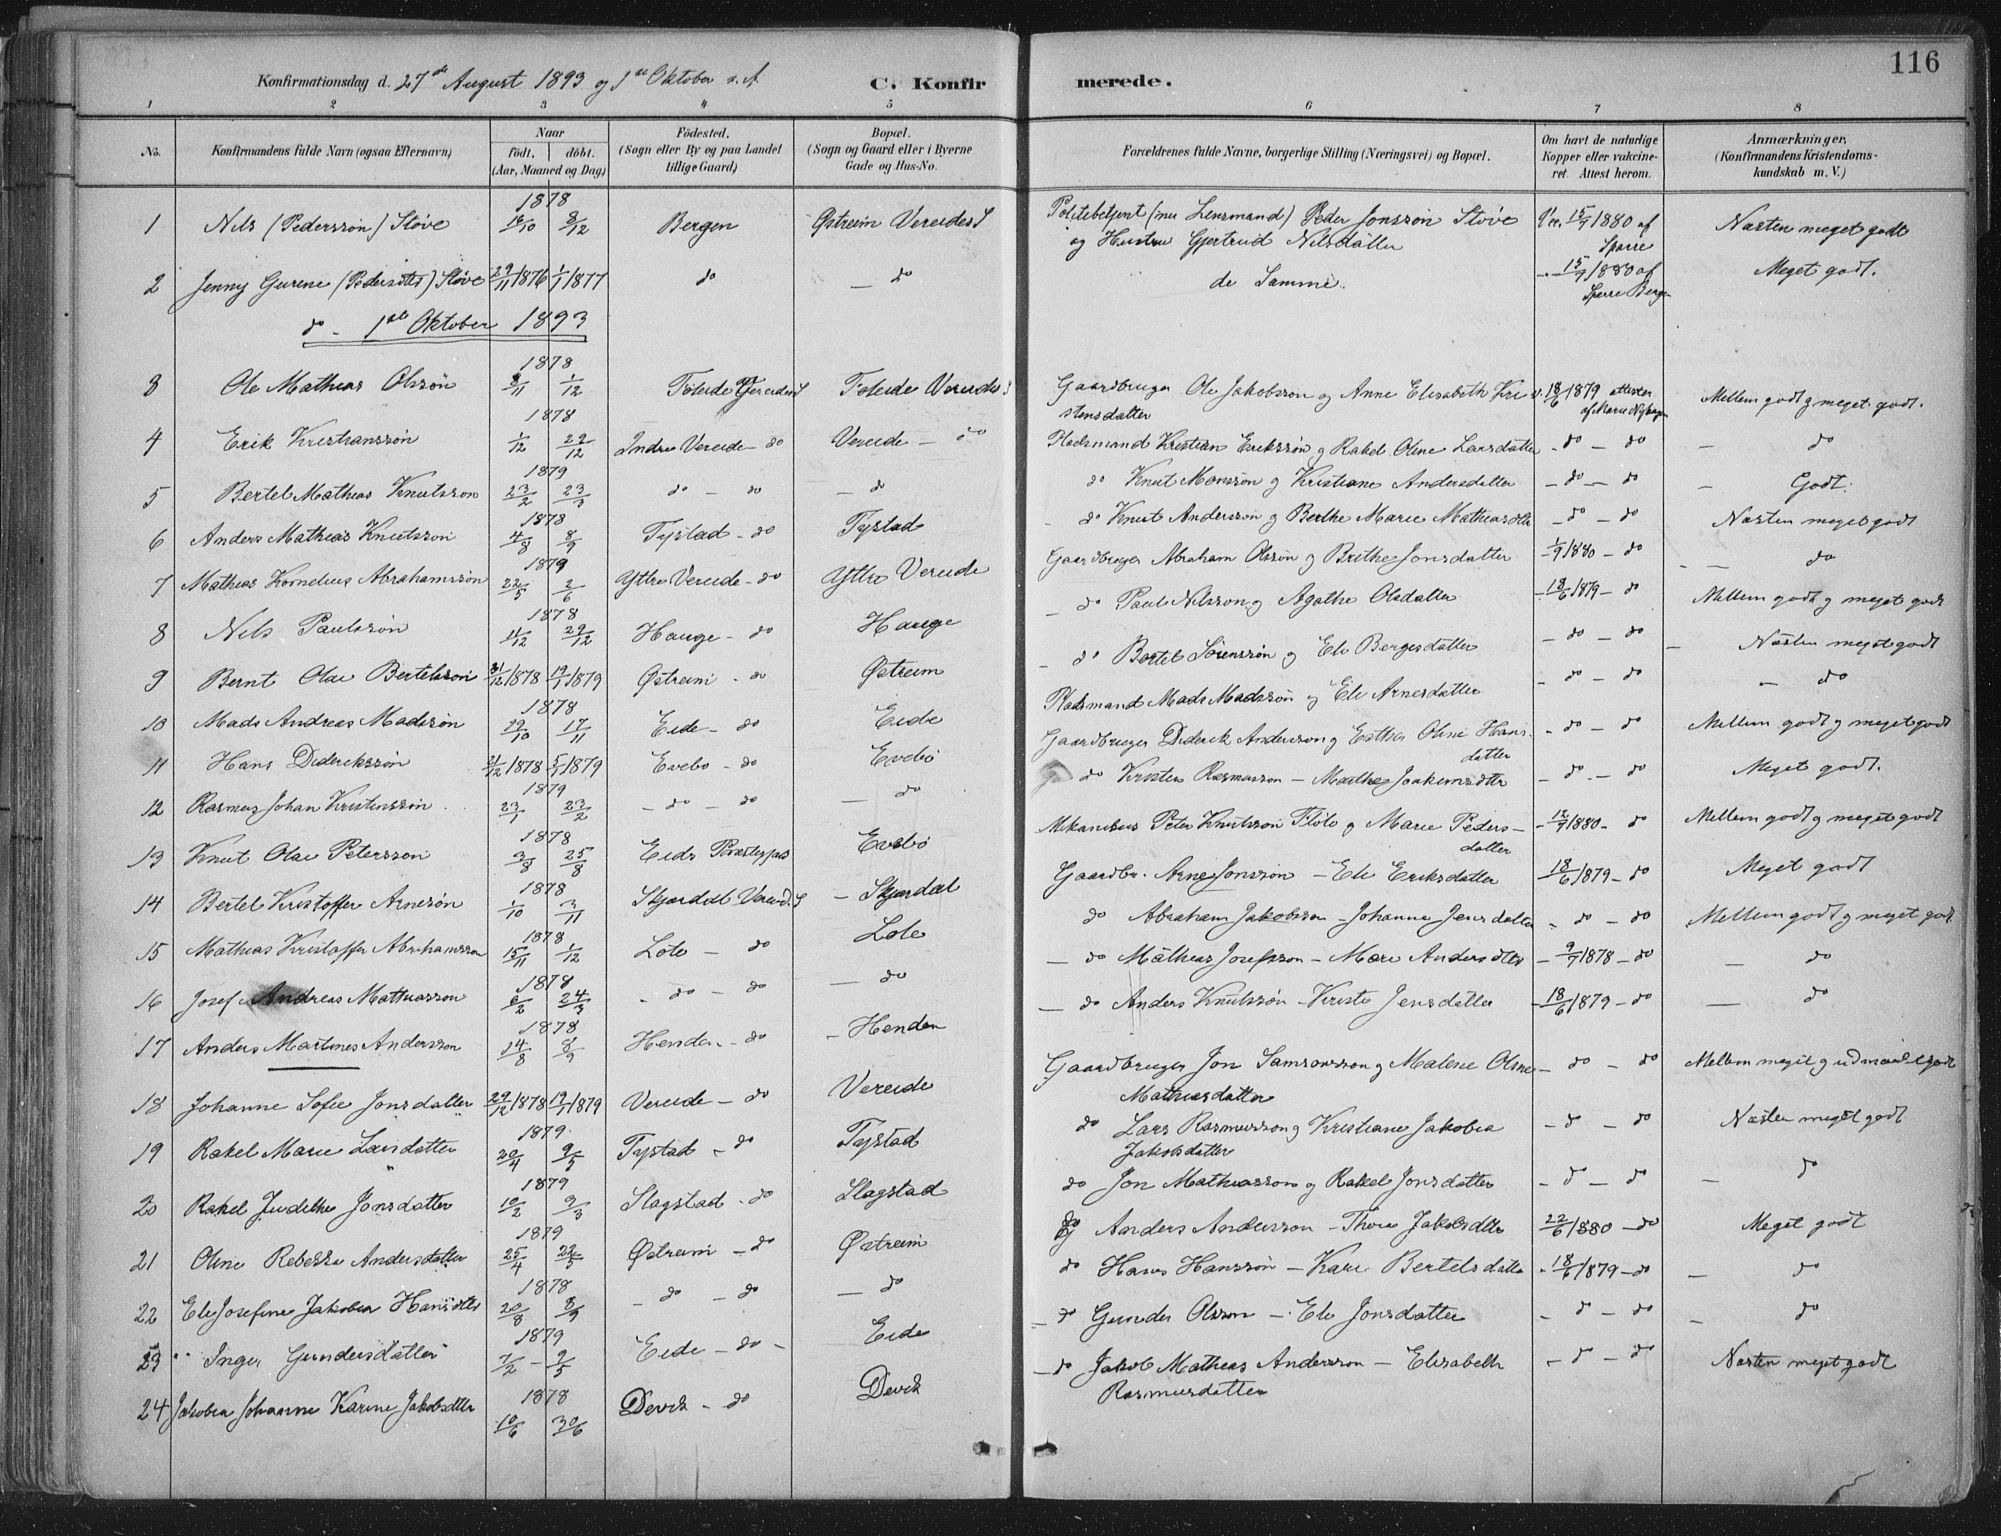 116
Konfirmationsdag d. 27de August 1893 og 1ste Oktober s. A.
C. Konfirmerede.
1 2 3 4 5 6 7 8
No. Konfirmandens fulde Navn (ogsaa Efternavn) Naar født. døbt. (Aar, Maaned og Dag) Fødested. (Sogn eller By og paa Landet tillige Gaard) Bopæl. (Sogn og Gaard eller i Byerne Gade og Hus-No. Forældrenes fulde Navne, borgerlige Stilling (Næringsvei) og Bopæl. Om havt de naturlige Kopper eller vakcineret. Attest herom. Anmærkninger. (Konfirmandens Kristendomskundskab m. V.)
1878
1 Nils (Pederssøn) Støve 16/10 8/12 Bergen Østreim Vereides S Politibetjent (nu Lensmand) Peder Jonssøn Støve 15/9 1880 af Næsten meget godt
og Hustru Gjertrud Nilsdatter Sparre
2 Jenny Gurene (Pedersdtr) Støve 29/11 1876 1/1 1877 do — do de Samme. 15/9 1880 af Meget godt.
Sparre Bergen
do - 1ste Oktober 1893
1878
3 Ole Mathias Olssøn 3/11 1/12 Toleide Vereides S Toleide Vereides S Gaardbruger Ole Jakobsson og Anne Elisabeth Kri- 18/6 1879 attester Mellem godt og meget godt.
stensdatter
1878
4 Erik Kristianssøn 1/12 22/12 Indre Vereide - do Vereide - do Pladsmand Kristian Erikssøn og Rakel Oline Larsdatter - do - do — do
1879
5 Bertel Mathias Knutsson 23/2 23/3 do - do - do do Knut Monssøn og Kristiane Andersdatter - do - do — Godt.
1878
6 Anders Mathias Knutsson 4/8 8/9 Tystad - do Tystad - do Knut Andersson og Berthe Marie Mathiasdtr - do - do Næsten meget godt
1879
7 Mathias Kornelius Abrahamssøn 22/5 2/6 Ytre Vereide - do Ytre Vereide Gaardbruger Abraham Olssøn og Brithe Jonsdatter 1/9 1880 - do — do
1878
8 Nils Paulssøn 11/12 29/12 Hauge - do Hauge - do Paul Nilsson og Agathe Olsdatter 18/6 1879 - do Mellem godt og meget godt
9 Bernt Olai Bertelssøn 31/12 1878 19/1 1879 Østreim - do Østreim - do Bertel Sørenssøn og Eli Bergesdatter - do - do - Næsten meget godt
1878
10 Mads Andreas Madssøn 19/10 17/11 Eide - do Eide Pladsmand Mads Madssøn og Eli Arnesdatter - do - do - do
11 Hans Dideriksson 21/12 1878 5/1 1879 Evebø - do Evebø Gaardbruger Diderik Andersson og Esther Oline Hans- - do - do Mellem godt og meget godt
datter
1879
12 Rasmus Johan Kristenssøn 23/1 23/2 - do - do — do do Kristen Rasmusson - Marthe Joakimsdtr - do - do Meget godt.
1878
13 Knut Olai Petersson 3/8 25/8 Eids Præstegjeld Evebø Mekanikus Peter Knutsson Fløto og Marie Peders- 12/9 1880 - do Mellem godt og meget godt
datter
1878
14 Bertel Kristoffer Arnesøn 1/10 3/11 Skjærdal Vereid. S - Skjærdal Gaardbr. Arne Jonssøn - Eli Eriksdatter 18/6 1879 - do Meget godt
1878
15 Mathias Kristoffer Abrahamsson 15/11 1/12 Lote - do Lote do Abraham Jakobsson - Johanne Jensdatter - do - do Mellem godt og meget godt
1878
16 Josef Andreas Mathiasson 6/2 24/3 - do - do — do — do Mathias Josefsson - Mari Andersdtr 9/9 1878 - do — do
1878
17 Anders Martines Andersson 14/8 8/9 Henden - do - Henden — do Anders Knutssøn - Kristi Jensdatter 18/6 1879 - do — do
18 Johanne Sofie Jonsdatter 29/12 1878 19/1 1879 Vereide - do Vereide Gaardbruger Jon Samsonsson og Malene Oline - do - do Mellem meget og udmærket godt
Mathiasdatter
1879
19 Rakel Marie Larsdatter 20/4 9/5 Tystad - do Tystad do Lars Rasmusson og Kristiane Jakobia - do - do Næsten meget godt
Jakobsdatter
1879
20 Rakel Judithe Jonsdatter 10/2 9/3 Slagstad - do Slagstad do Jon Mathiasson og Rakel Jonsdatter - do - do — do
1879
21 Oline Rebekka Andersdatter 25/4 22/5 Østreim - do Østreim do Anders Andersson - Thore Jakobsdtr 22/6 1880 - do Meget godt
1878
22 Eli Josefine Jakobia Hansdtr 20/8 8/9 - do - do — do do Hans Hanssøn - Kari Bertelsdatter 18/6 1879 - do — do
1879
23 Inger Gundersdatter 7/2 - 9/5 Eide - do - Eide - do Gunder Olsson - Eli Jonsdatter - do - do — do
1878
24 Jakobia Johanne Karine Jakobsdtr 10/6 30/6 Devik - do Devik - do Jakob Mathias Andersson - Elisabeth - do - do Næsten meget godt
Rasmusdatter